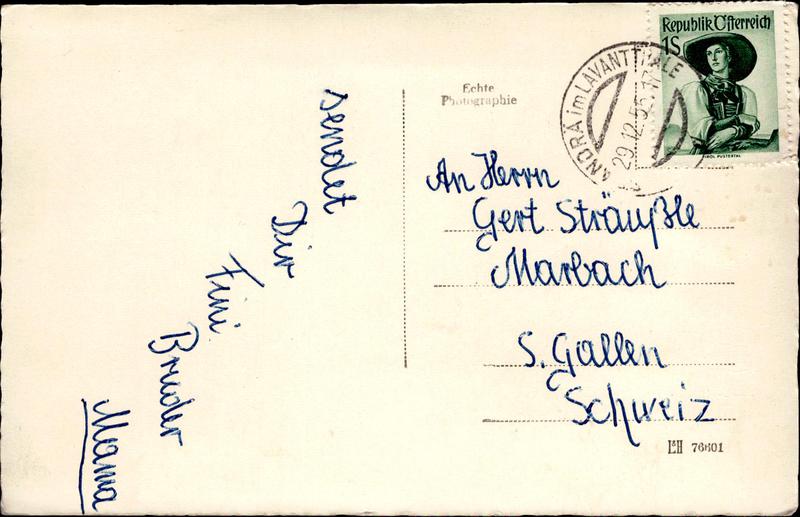 sendet
Dir
Fini
Bruder
Mama
Echte
Photographie
Republik Österreich
1S
TIROL PUSTERTAL
ANDRÄ im LAVANTTHALE
29.12.55.17
An Herrn
Gert Sträußle
Marbach
S. Gallen
Schweiz
L&H 76601